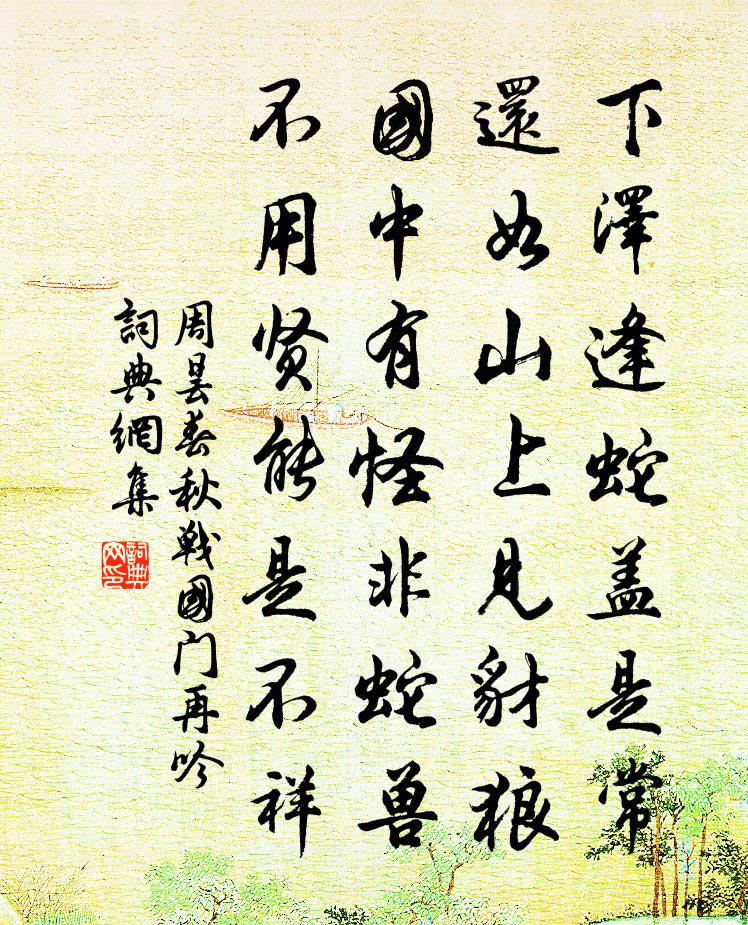 下澤逢蛇盖是常
還如山上見豺狼
國中有怪非蛇兽
不用贤能是不祥
周昙春秋戰國门再吟
詞典網集
詞典网印